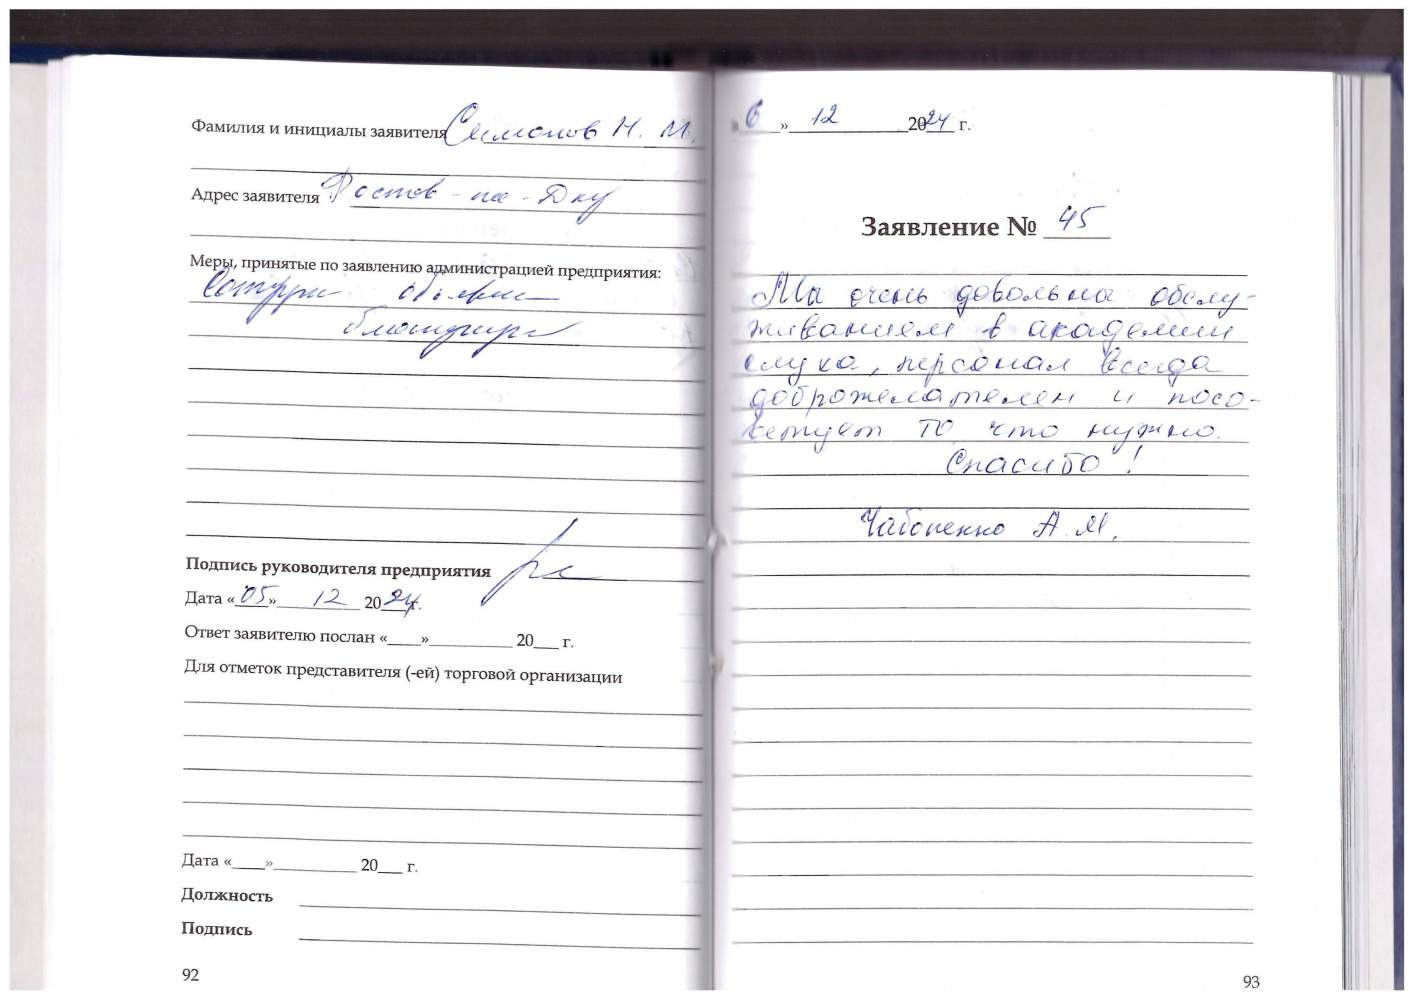 Фамилия и инициалы заявителя Симонов Н. М.
Адрес заявителя Ростов-на-Дну
Меры, принятые по заявлению администрацией предприятия:
объявл
Подпись руководителя предприятия
Дата «05» 12 2024 г.
Ответ заявителю послан «____»__________ 20___ г.
Для отметок представителя (-ей) торговой организации
Дата «____»__________ 20___ г.
Должность
Подпись
92
6 » 12 2024 г.
Заявление № 45
Мы очень довольны обслу-
живанием в академии
слуха, персонал всегда
доброжелателен и посо-
ветует то что нужно.
Спасибо!
А. М.
93